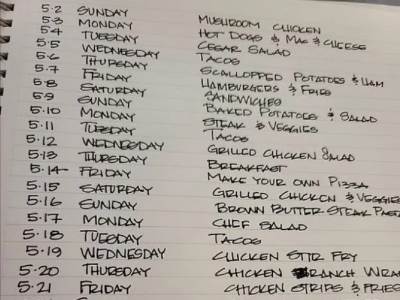 5.2 SUNDAY MUSHROOM CHICKEN
5.3 MONDAY HOT DOGS & MAC & CHEESE
5.4 TUESDAY CESAR SALAD
5.5 WEDNESDAY TACOS
5.6 THURSDAY SCALLOPPED POTATOES & HAM
5.7 FRIDAY HAMBURGERS & FRIES
5.8 SATURDAY SANDWICHES
5.9 SUNDAY BAKED POTATOES & SALAD
5.10 MONDAY STEAK & VEGGIES
5.11 TUESDAY TACOS
5.12 WEDNESDAY GRILLED CHICKEN SALAD
5.13 THURSDAY BREAKFAST
5.14 FRIDAY MAKE YOUR OWN PIZZA
5.15 SATURDAY GRILLED CHICKEN & VEGGIES
5.16 SUNDAY BROWN BUTTER STEAK PAST
5.17 MONDAY CHEF SALAD
5.18 TUESDAY TACOS
5.19 WEDNESDAY CHICKEN STIR FRY
5.20 THURSDAY CHICKEN RANCH WRA
5.21 FRIDAY CHICKEN STRIPS & FRIES